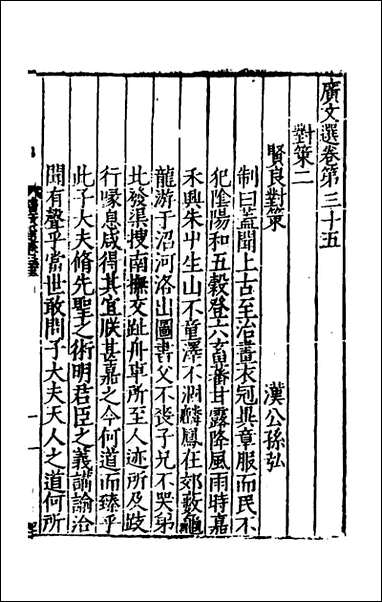 廣文選卷第三十五
對策二
賢良對策 漢公孫弘
制曰盖聞上古至治畫衣冠異章服而民不
犯隂陽和五穀登六畜蕃甘露降風雨時嘉
禾興朱屮生山不童澤不涸麟鳳在郊藪龜
龍游于沼河洛出圖書父不喪子兄不哭弟
北發渠搜南撫交趾舟車所至人迹所及跂
行喙息咸得其宜朕甚嘉之今何道而臻乎
此子大夫脩先聖之術明君臣之義講論洽
聞有聲乎當世敢問子大夫天人之道何所